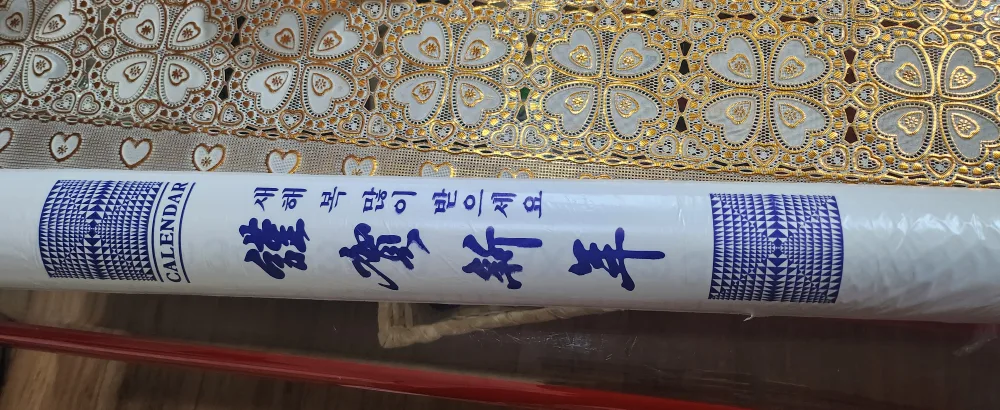 새해 복 많이 받으세요
謹賀新年
CALENDAR